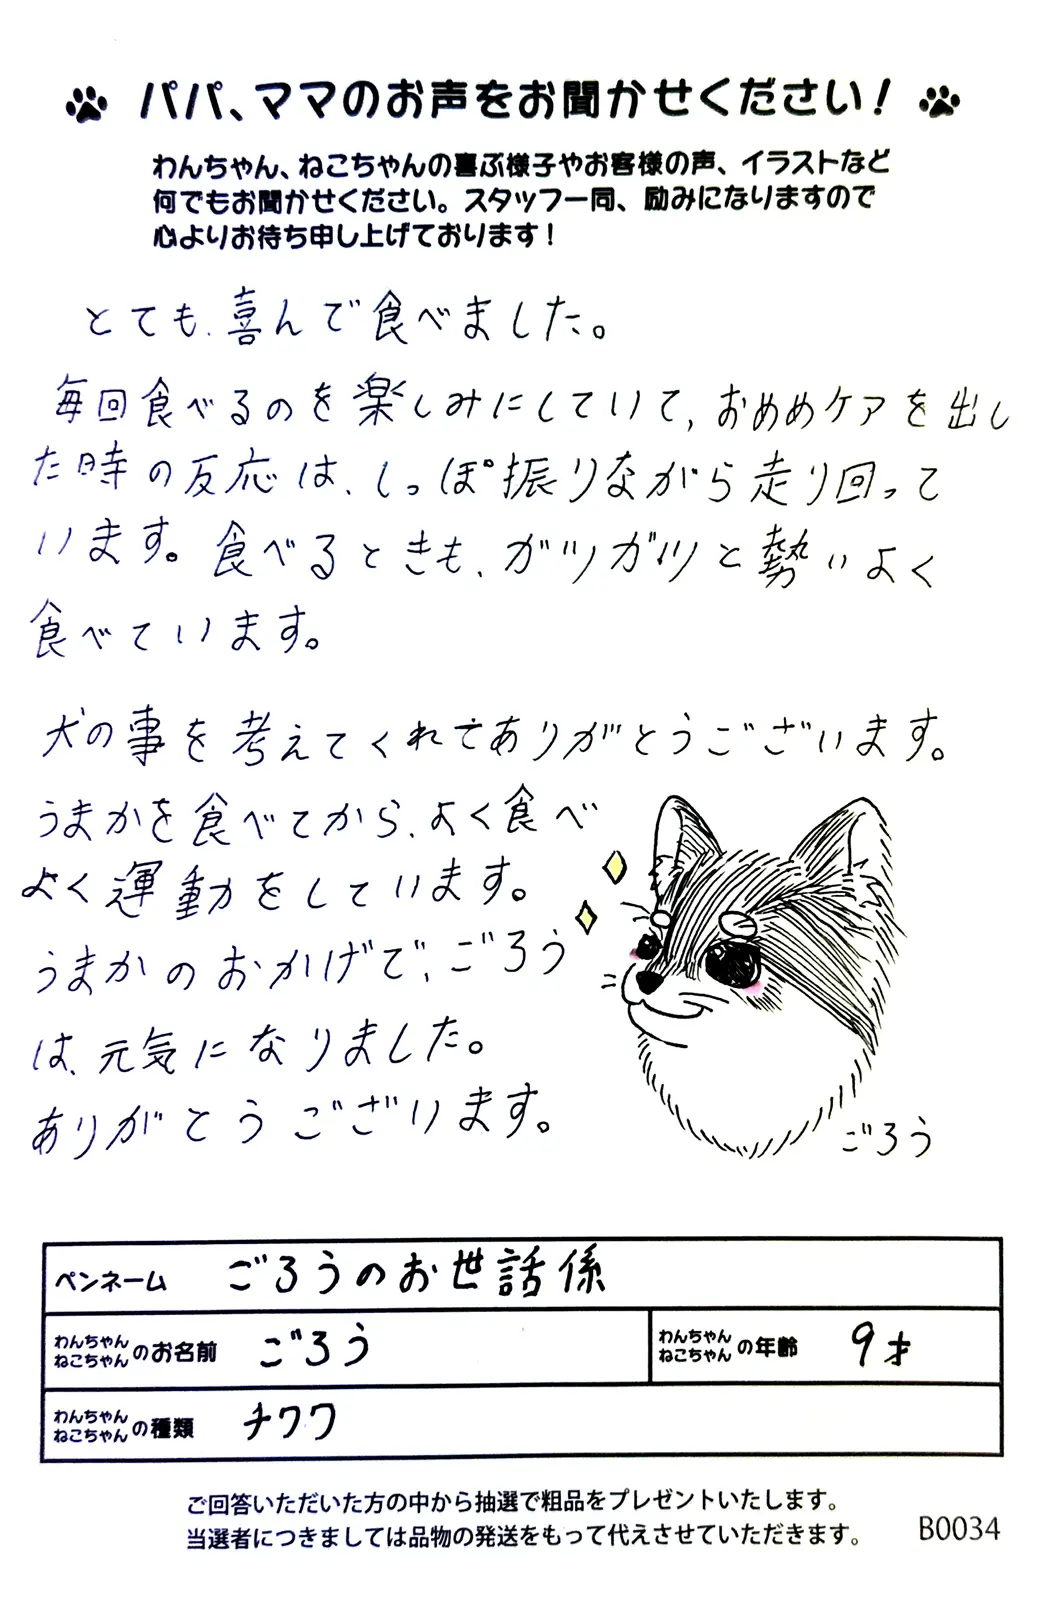 パパ、ママのお声をお聞かせください！
わんちゃん、ねこちゃんの喜ぶ様子やお客様の声、イラストなど
何でもお聞かせください。スタッフ一同、励みになりますので
心よりお待ち申し上げております！
とても、喜んで食べました。
毎回食べるのを楽しみにしていて、おめめケアを出し
た時の反応は、しっぽ振りながら走り回って
います。食べるときも、ガツガツと勢いよく
食べています。
犬の事を考えてくれてありがとうございます。
うまかを食べてから、よく食べ
よく運動をしています。
うまかのおかげで、ごろう
は、元気になりました。
ありがとうございます。
ごろう
ペンネーム ごろうのお世話係
わんちゃん
ねこちゃん のお名前 ごろう
わんちゃん
ねこちゃん の年齢 9才
わんちゃん
ねこちゃん の種類 チワワ
ご回答いただいた方の中から抽選で粗品をプレゼントいたします。
当選者につきましては品物の発送をもって代えさせていただきます。
B0034